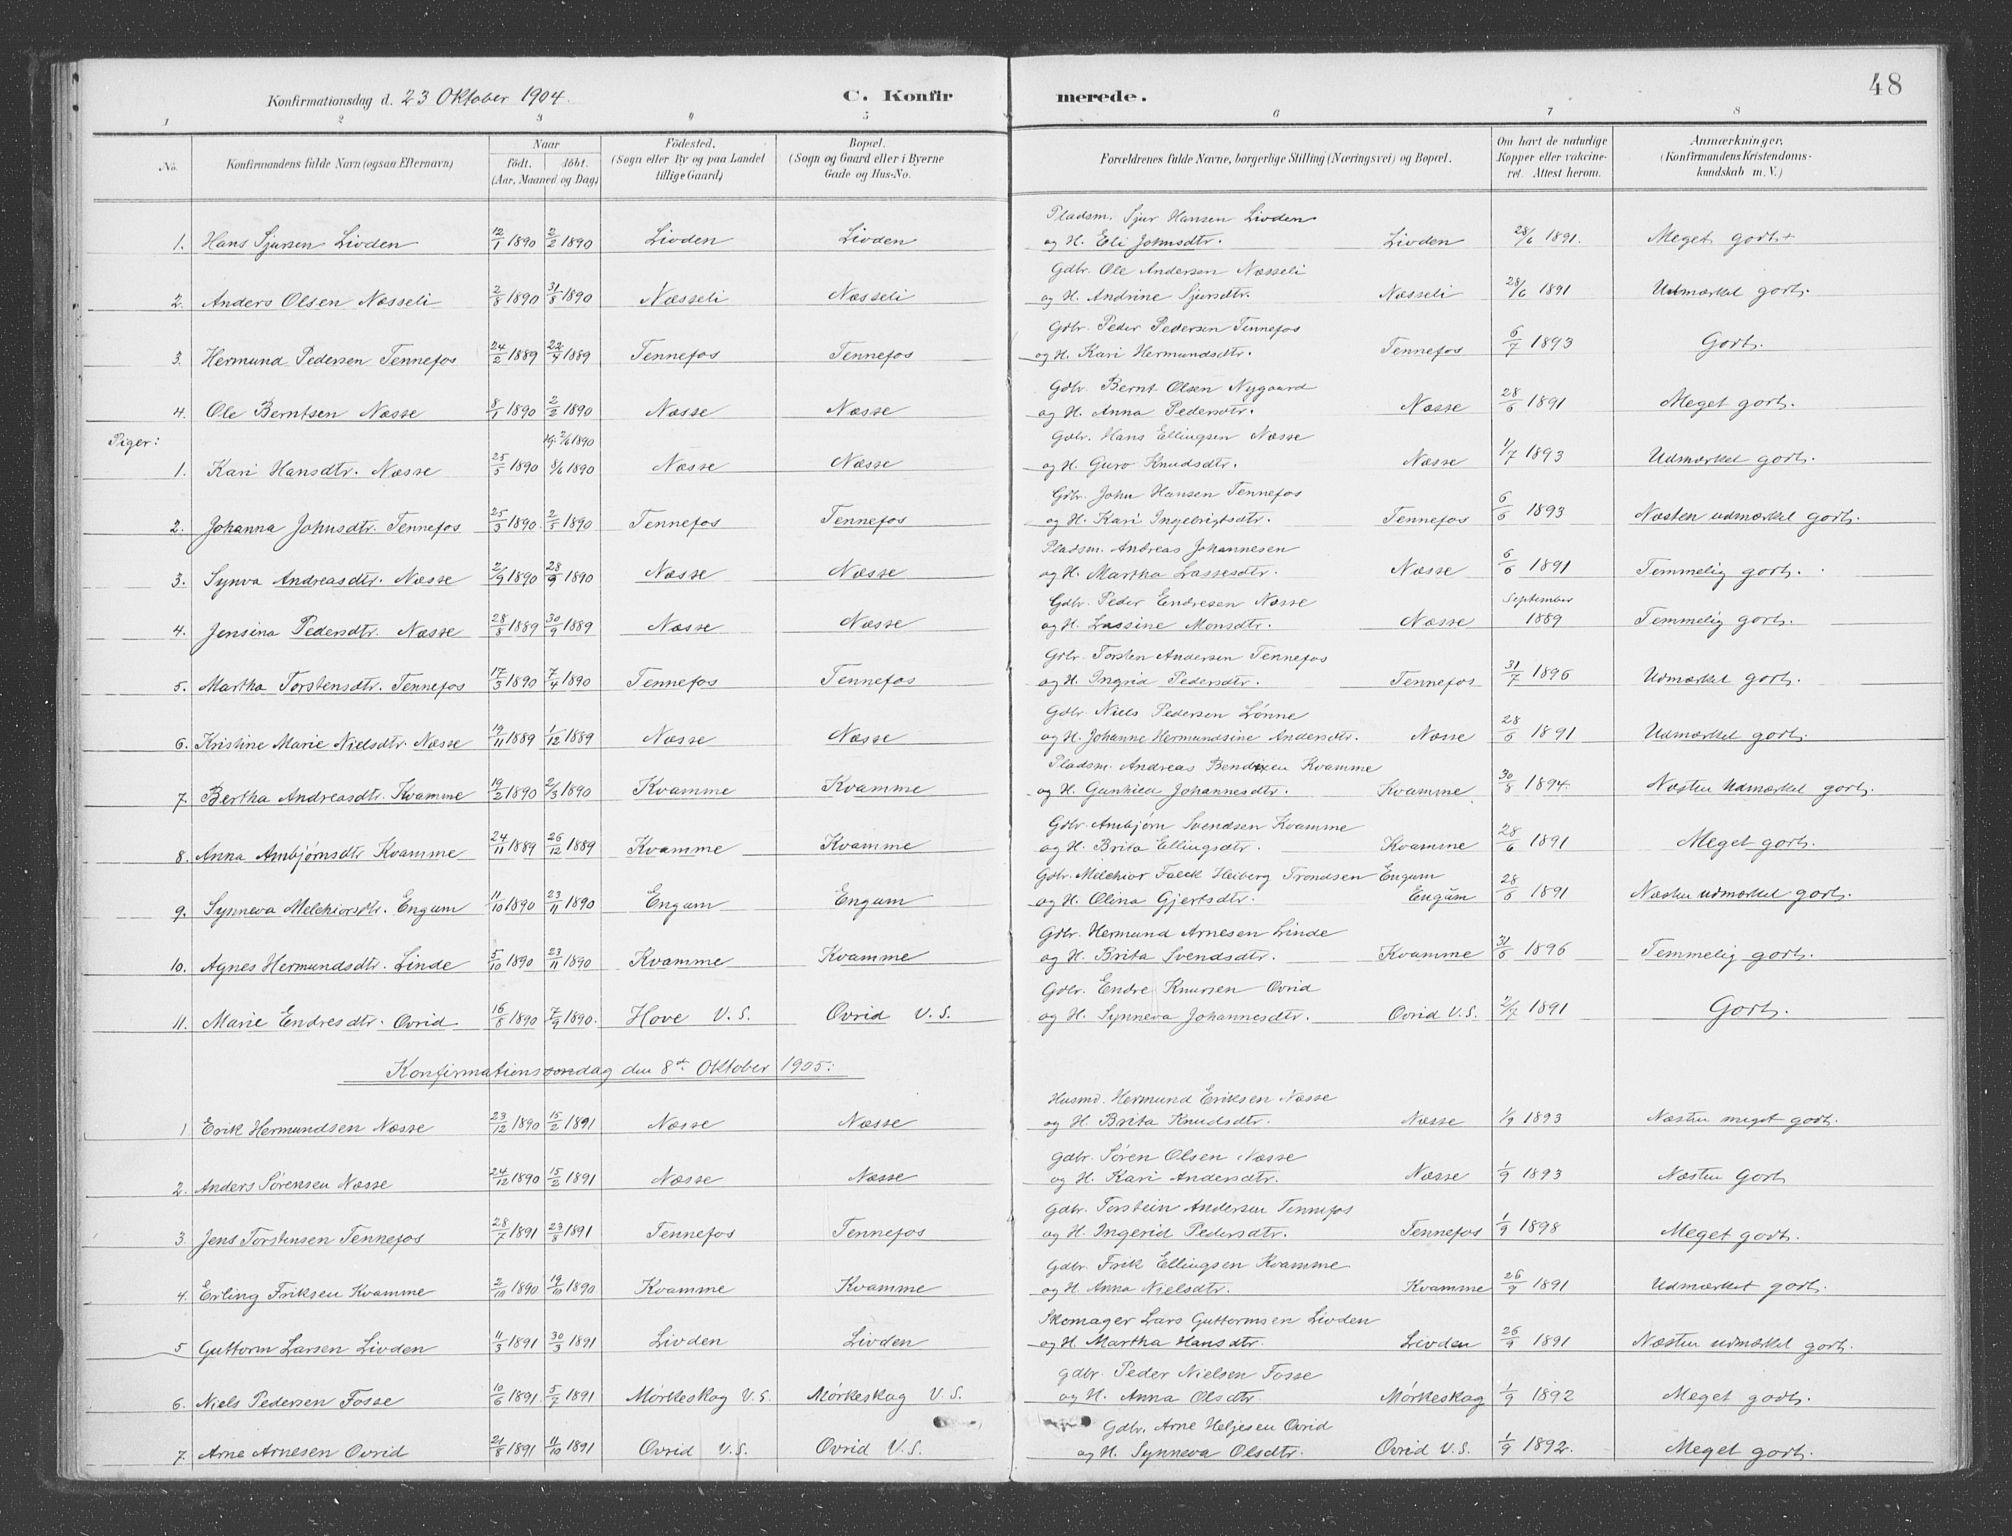 48
Konfirmationsdag d. 23 Oktober 1904. C. Konfirmerede.
1 2 3 4 5 6 7 8
No. Konfirmandens fulde Navn (ogsaa Efternavn) Naar født. døbt. (Aar, Maaned og Dag) Fødested. (Sogn eller By og paa Landet tillige Gaard) Bopæl. (Sogn og Gaard eller i Byerne Gade og Hus-No. Forældrenes fulde Navne, borgerlige Stilling (Næringsvei) og Bopæl. Om havt de naturlige Kopper eller vakcineret. Attest herom. Anmærkninger, (Konfirmandens Kristendomskundskab m. V.)
Pladsm. Sjur Hansen Livden
1. Hans Sjursen Livden 12/1 1890 2/2 1890 Livden Livden og H. Eli Johnsdtr. Livden 28/6 1891. Meget godt
Gdbr. Ole Andersen Næsseli
2. Anders Olsen Næsseli 2/8 1890 31/8 1890 Næsseli Næsseli og H. Andrine Sjursdtr. Næsseli 28/6 1891 Udmærket godt.
Gdbr. Peder Pedersen Tennefos
3. Hermund Pedersen Tennefos 24/2 1889 22/4 1889 Tennefos Tennefos og H. Kari Hermundsdtr. Tennefos 6/7 1893 Godt.
Gdbr. Bernt Olsen Nygaard
4. Ole Berntsen Næsse 8/1 1890 2/2 1890 Næsse Næsse og H. Anna Pedersdtr. Næsse 28/6 1891 Meget godt.
Piger: Hj. 2/6 1890 Gdbr. Hans Ellingsen Næsse
1. Kari Hansdtr. Næsse 25/5 1890 8/6 1890 Næsse Næsse og H. Guro Knudsdtr. Næsse 1/7 1893 Udmærket godt.
Gdbr. John Hansen Tennefos
2. Johanna Johnsdtr. Tennefos 25/3 1890. 2/5 1890 Tennefos Tennefos og H. Kari Ingebrigtsdtr. Tennefos 6/6 1893 Næsten udmærket godt.
Pladsm. Andreas Johannesen
3. Synva Andreasdtr. Næsse 2/9 1890 28/9 1890 Næsse Næsse og H. Martha Lassesdtr. Næsse 6/6 1891 Temmelig godt.
Gdbr. Peder Endresen Næsse September
4. Jensina Pedersdtr. Næsse 28/8 1889 30/9 1889 Næsse Næsse og H. Lassine Monsdtr. Næsse 1889 Temmelig godt.
Gdbr. Torsten Andersen Tennefos
5. Martha Torstensdtr. Tennefos 17/3 1890 7/4 1890 Tennefos Tennefos og H. Ingrid Pedersdtr. Tennefos 31/7 1896 Udmærket godt.
Gdbr. Niels Pedersen Lønne
6. Kristine Marie Nielsdtr. Næsse 19/11 1889 1/12 1889 Næsse Næsse og H. Johanne Hermundsine Andersdtr. Næsse 28/6 1891 Udmærket godt.
Pladsm. Andreas Bendixen Kvamme
7. Bertha Andreasdtr. Kvamme 19/2 1890 2/3 1890 Kvamme Kvamme og H. Gunhild Johannesdtr. Kvamme 30/8 1894. Næsten Udmærket godt.
Gdbr. Ambjørn Svendsen Kvamme
8. Anna Ambjørnsdtr Kvamme 24/11 1889 26/12 1889 Kvamme Kvamme og H. Brita Ellingsdtr. Kvamme 28/6 1891 Meget godt.
Gdbr. Milchior Falck Heiberg Trondsen Engum
9. Synneva Melchiorsdtr. Engum 11/10 1890 23/11 1890 Engum Engum og H. Olina Gjertsdtr. Engum 28/6 1891 Næsten udmærket godt.
Gdbr. Hermund Arnesen Linde
10. Agnes Hermundsdtr. Linde 5/10 1890 23/11 1890 Kvamme Kvamme og H. Brita Svendsdtr. Kvamme 31/6 1896 Temmelig godt.
Gdbr. Endre Knutsen Ovrid
11. Marie Endresdtr. Ovrid 16/8 1890 7/9 1890. Hove V. S. Ovrid V. S. og H. Synneva Johannesdtr. Ovrid V. S. 2/7 1891 Godt.
Konfirmationsdag den 8de Oktober 1905:
Husmd. Hermund Eriksen Næsse
1 Erik Hermundsen Næsse 23/12 1890 15/2 1891 Næsse Næsse og H. Brita Knudsdtr. Næsse 1/9 1893 Næsten meget godt.
Gdbr. Søren Olsen Næsse
2. Anders Sørensen Næsse 24/12 1890 15/2 1891 Næsse Næsse og H. Kari Andersdtr. Næsse 1/9 1893 Næsten Godt
Gdbr. Torstein Andersen Tennefos
3. Jens Torstensen Tennefos 28/7 1891 23/8 1891 Tennefos Tennefos og H. Ingerid Pedersdtr. Tennefos 1/9 1898 Meget godt.
Gdbr. Frik Ellingsen Kvamme
4. Erling Friksen Kvamme 2/10 1890 19/10 1890 Kvamme Kvamme og H. Anna Nielsdtr. Kvamme 26/9 1891 Udmærket godt.
Skomager Lars Guttormsen Livden
5 Guttorm Larsen Livden 11/3 1891 30/3 1891 Livden Livden og H. Martha Hansdtr. Livden 26/9 1891 Næsten udmærket godt.
Gdbr. Peder Nielsen Fosse
6. Niels Pedersen Fosse 10/6 1891. 5/7 1891 Mørkeskog V. S. Mørkeskog V. S. og H. Anna Olsdtr. Mørkeskog 1/9 1892 Meget godt.
Gdbr. Arne Heljesen Ovrid
7. Arne Arnesen Ovrid 21/8 1891 11/10 1891 Ovrid V. S. Ovrid V. S. og H. Synneva Olsdtr. Ovrid V. S. 1/9 1892. Meget godt.